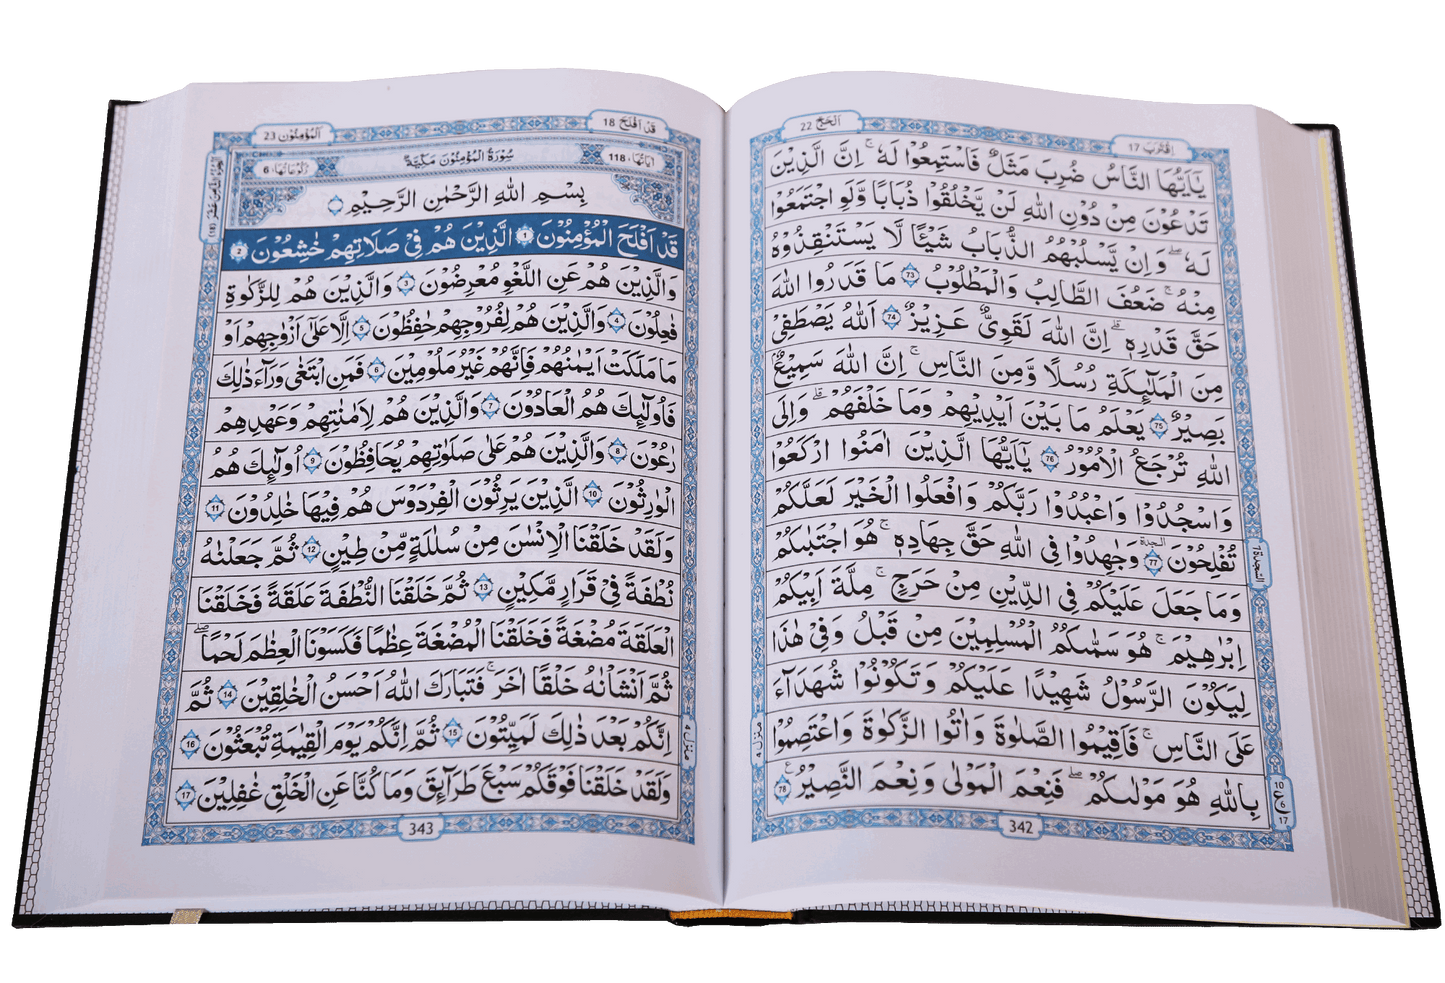 اِقْتَرَبَ 17
اَلْحَجّ 22
يٰۤاَيُّهَا النَّاسُ ضُرِبَ مَثَلٌ فَاسْتَمِعُوْا لَهٗ ؕ اِنَّ الَّذِيْنَ
تَدْعُوْنَ مِنْ دُوْنِ اللّٰهِ لَنْ يَّخْلُقُوْا ذُبَابًا وَّلَوِ اجْتَمَعُوْا
لَهٗ ؕ وَاِنْ يَّسْلُبْهُمُ الذُّبَابُ شَيْـًٔا لَّا يَسْتَنْقِذُوْهُ
مِنْهُ ؕ ضَعُفَ الطَّالِبُ وَالْمَطْلُوْبُ 73 مَا قَدَرُوا اللّٰهَ
حَقَّ قَدْرِهٖ ؕ اِنَّ اللّٰهَ لَقَوِىٌّ عَزِيْزٌ 74 اَللّٰهُ يَصْطَفِىْ
مِنَ الْمَلٰٓئِكَةِ رُسُلًا وَّمِنَ النَّاسِ ؕ اِنَّ اللّٰهَ سَمِيْعٌۢ
بَصِيْرٌ 75 يَعْلَمُ مَا بَيْنَ اَيْدِيْهِمْ وَمَا خَلْفَهُمْ ؕ وَاِلَى
اللّٰهِ تُرْجَعُ الْاُمُوْرُ 76 يٰۤاَيُّهَا الَّذِيْنَ اٰمَنُوا ارْكَعُوْا
وَاسْجُدُوْا وَاعْبُدُوْا رَبَّكُمْ وَافْعَلُوا الْخَيْرَ لَعَلَّكُمْ
تُفْلِحُوْنَ 77 وَجٰهِدُوْا فِى اللّٰهِ حَقَّ جِهَادِهٖ ؕ هُوَ اجْتَبٰىكُمْ
وَمَا جَعَلَ عَلَيْكُمْ فِى الدِّيْنِ مِنْ حَرَجٍ ؕ مِلَّةَ اَبِيْكُمْ
اِبْرٰهِيْمَ ؕ هُوَ سَمّٰىكُمُ الْمُسْلِمِيْنَ مِنْ قَبْلُ وَفِىْ هٰذَا
لِيَكُوْنَ الرَّسُوْلُ شَهِيْدًا عَلَيْكُمْ وَتَكُوْنُوْا شُهَدَآءَ
عَلَى النَّاسِ ؕ فَاَقِيْمُوا الصَّلٰوةَ وَاٰتُوا الزَّكٰوةَ وَاعْتَصِمُوْا
بِاللّٰهِ هُوَ مَوْلٰىكُمْ ۚ فَنِعْمَ الْمَوْلٰى وَنِعْمَ النَّصِيْرُ 78
السجدة
منزل ٤
10
ع
6
17
342
قَدْ اَفْلَحَ 18
اَلْمُؤْمِنُوْن 23
اٰيَاتُهَا، 118
سُوْرَةُ الْمُؤْمِنُوْنَ مَكِّيَّةٌ
رُكُوْعَاتُهَا، 6
بِسْمِ اللّٰهِ الرَّحْمٰنِ الرَّحِيْمِ
قَدْ اَفْلَحَ الْمُؤْمِنُوْنَ 1 الَّذِيْنَ هُمْ فِىْ صَلَاتِهِمْ خٰشِعُوْنَ 2
وَالَّذِيْنَ هُمْ عَنِ اللَّغْوِ مُعْرِضُوْنَ 3 وَالَّذِيْنَ هُمْ لِلزَّكٰوةِ
فٰعِلُوْنَ 4 وَالَّذِيْنَ هُمْ لِفُرُوْجِهِمْ حٰفِظُوْنَ 5 اِلَّا عَلٰٓى اَزْوَاجِهِمْ اَوْ
مَا مَلَكَتْ اَيْمَانُهُمْ فَاِنَّهُمْ غَيْرُ مَلُوْمِيْنَ 6 فَمَنِ ابْتَغٰى وَرَآءَ ذٰلِكَ
فَاُولٰٓئِكَ هُمُ الْعَادُوْنَ 7 وَالَّذِيْنَ هُمْ لِاَمٰنٰتِهِمْ وَعَهْدِهِمْ
رٰعُوْنَ 8 وَالَّذِيْنَ هُمْ عَلٰى صَلَوٰتِهِمْ يُحَافِظُوْنَ 9 اُولٰٓئِكَ هُمُ
الْوٰرِثُوْنَ 10 الَّذِيْنَ يَرِثُوْنَ الْفِرْدَوْسَ هُمْ فِيْهَا خٰلِدُوْنَ 11
وَلَقَدْ خَلَقْنَا الْاِنْسَانَ مِنْ سُلٰلَةٍ مِّنْ طِيْنٍ 12 ثُمَّ جَعَلْنٰهُ
نُطْفَةً فِىْ قَرَارٍ مَّكِيْنٍ 13 ثُمَّ خَلَقْنَا النُّطْفَةَ عَلَقَةً فَخَلَقْنَا
الْعَلَقَةَ مُضْغَةً فَخَلَقْنَا الْمُضْغَةَ عِظٰمًا فَكَسَوْنَا الْعِظٰمَ لَحْمًا
ثُمَّ اَنْشَاْنٰهُ خَلْقًا اٰخَرَ ؕ فَتَبَارَكَ اللّٰهُ اَحْسَنُ الْخٰلِقِيْنَ 14 ثُمَّ
اِنَّكُمْ بَعْدَ ذٰلِكَ لَمَيِّتُوْنَ 15 ثُمَّ اِنَّكُمْ يَوْمَ الْقِيٰمَةِ تُبْعَثُوْنَ 16
وَلَقَدْ خَلَقْنَا فَوْقَكُمْ سَبْعَ طَرَآئِقَ وَمَا كُنَّا عَنِ الْخَلْقِ غٰفِلِيْنَ 17
منزل ٤
343